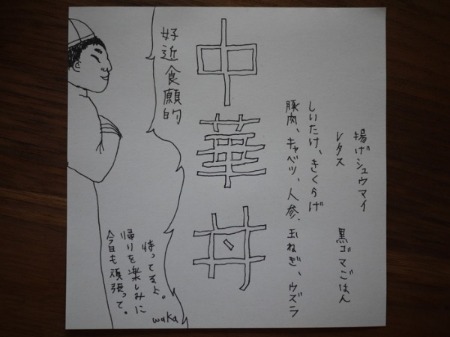 揚げシュウマイ　黒ゴマごはん
レタス
しいたけ、きくらげ
豚肉、キャベツ、人参、玉ねぎ、ウズラ
中華丼
好近食願的
待ってるよ。
帰りを楽しみに
今日も頑張って。
waka